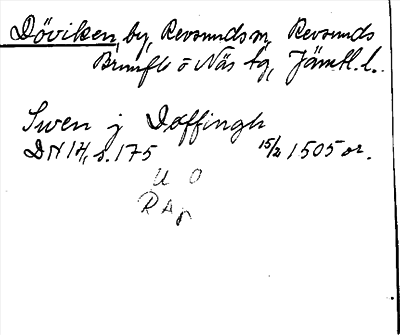 Döviken, by, Revsunds sn, Revsunds
Brunflo o Näs tg, Jämtl. l.
Swen j Doffingh
DN 14, s. 175 15/2 1505 or.
U O
RAp